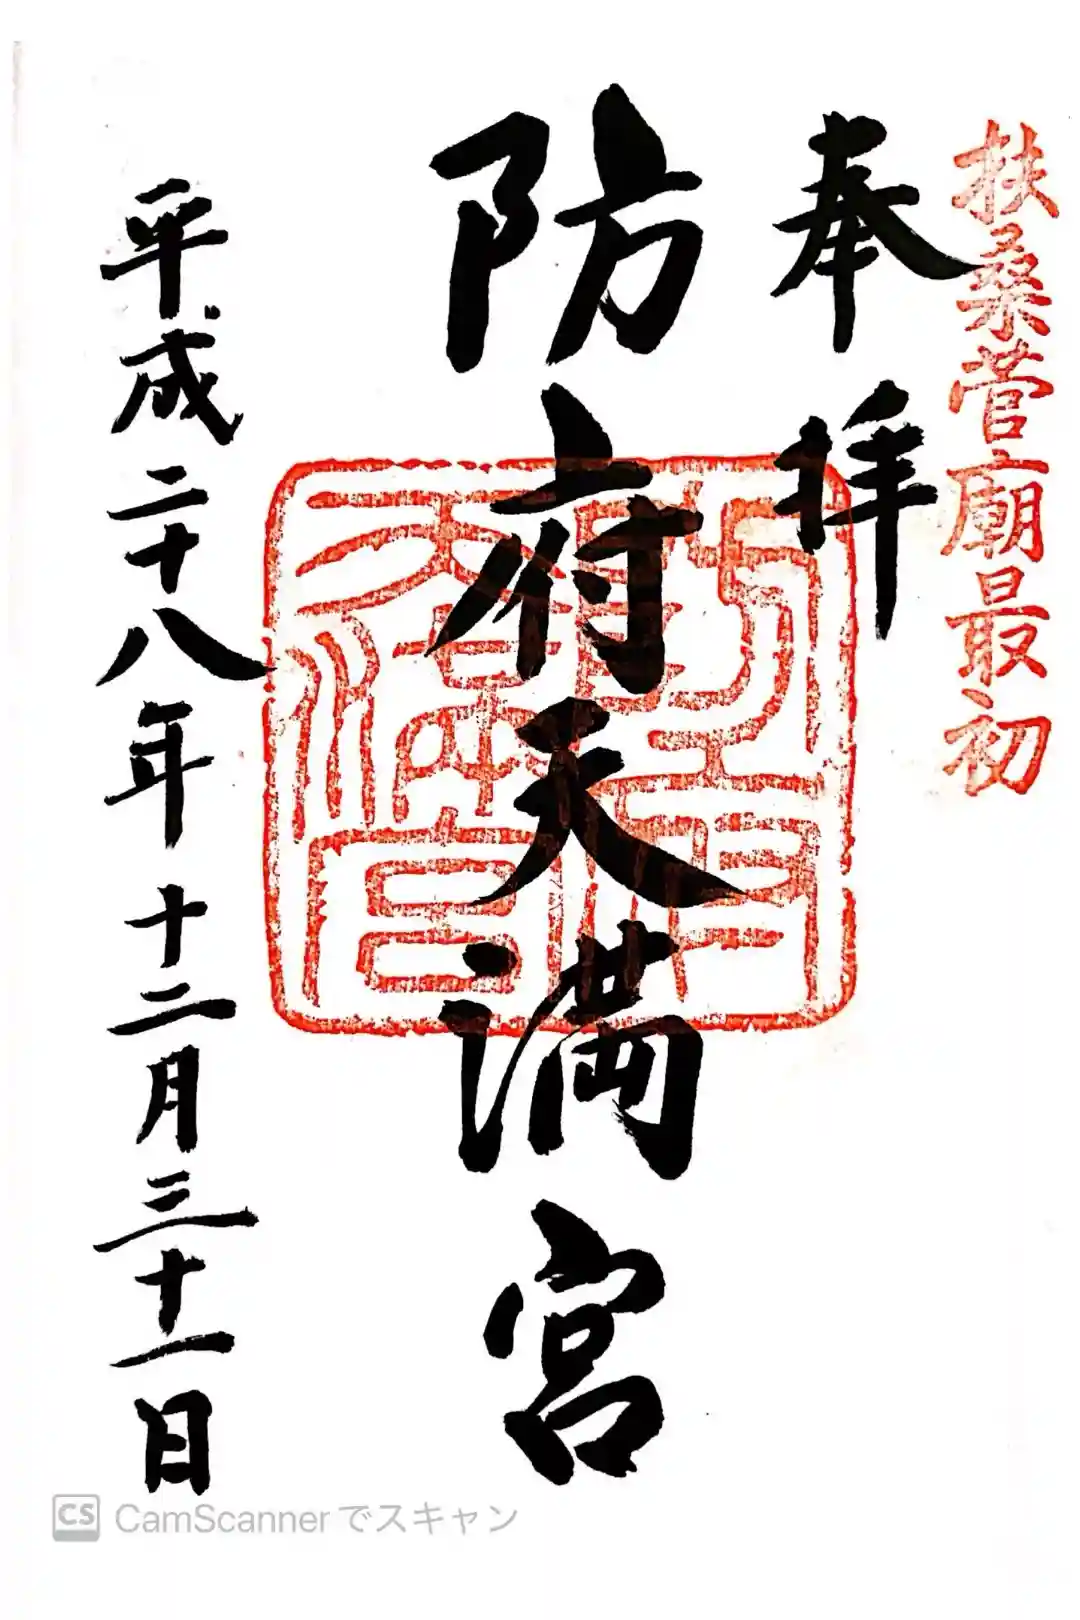 扶桑菅廟最初
奉拝
防府天満宮
平成二十八年十二月三十一日
CS CamScannerでスキャン